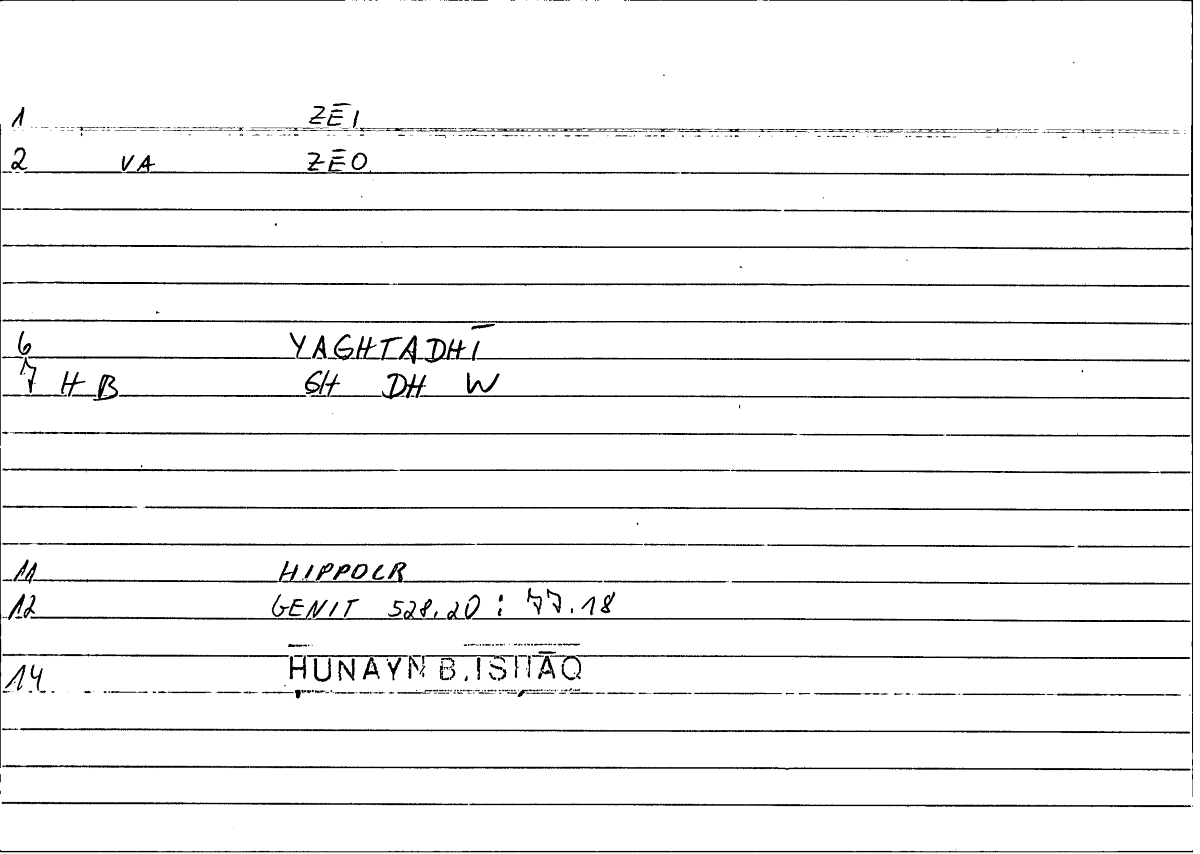 1 ZĒI
2 VA ZĒO
6 YAGHTADHĪ
7 HB GH DH W
11 HIPPOCR
12 GENIT 528.20 : 77.18
14 ḤUNAYN B.ISḤĀQ